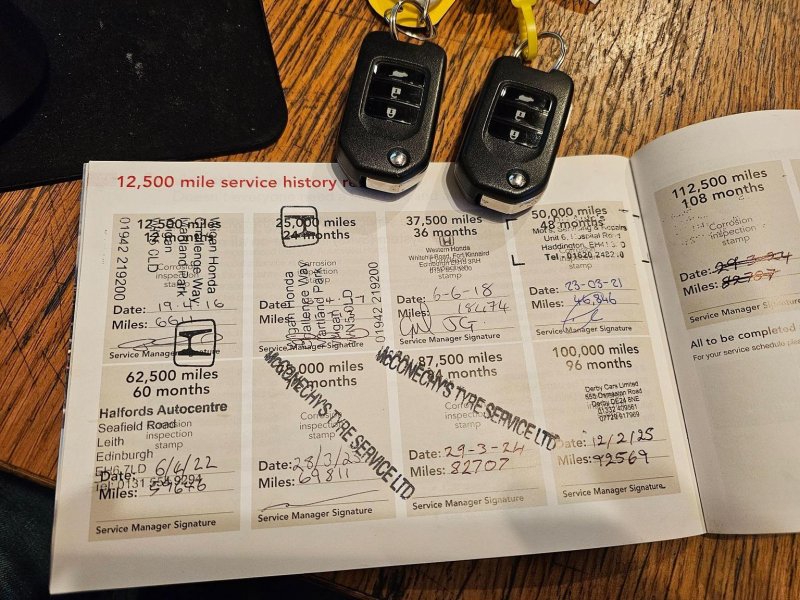 12,500 mile service history
12,500 miles
12 months
Corrosion
inspection
stamp
Wigan Honda
Challenge Way
Martland Park
01942 219200
Date:
Miles:
Service Manager Signature
25,000 miles
24 months
Corrosion
inspection
stamp
Wigan Honda
Challenge Way
Martland Park
Wigan
WN5 0LD
01942 219200
Date:
Miles:
Service Manager Signature
37,500 miles
36 months
Western Honda
Corrosion
inspection
stamp
Date: 6-6-18
Miles: 18474
JG.
Service Manager Signature
50,000 miles
48 months
Haddington, EH41
Tel - 01620
inspection
stamp
Date: 23-03-21
Miles: 46,846
Service Manager Signature
62,500 miles
60 months
Halfords Autocentre
Seafield Road
Leith
Edinburgh
EH6 7LD
Tel: 0131
Corrosion
inspection
stamp
Date: 6/4/22
Miles:
Service Manager Signature
,000 miles
months
McCONECHY'S TYRE SERVICE LTD
Corrosion
inspection
stamp
Date: 28/3/23
Miles: 69811
Service Manager Signature
87,500 miles
months
McCONECHY'S TYRE SERVICE LTD
Corrosion
inspection
stamp
Date: 29-3-24
Miles: 82707
Service Manager Signature
100,000 miles
96 months
Derby Cars Limited
Osmaston Road
Derby DE24 8NE
Date: 12/2/25
Miles: 92569
Service Manager Signature
112,500 miles
108 months
Corrosion
inspection
stamp
Date: 29-3-24
Miles: 82707
Service Manager Signature
All to be completed
For your service schedule